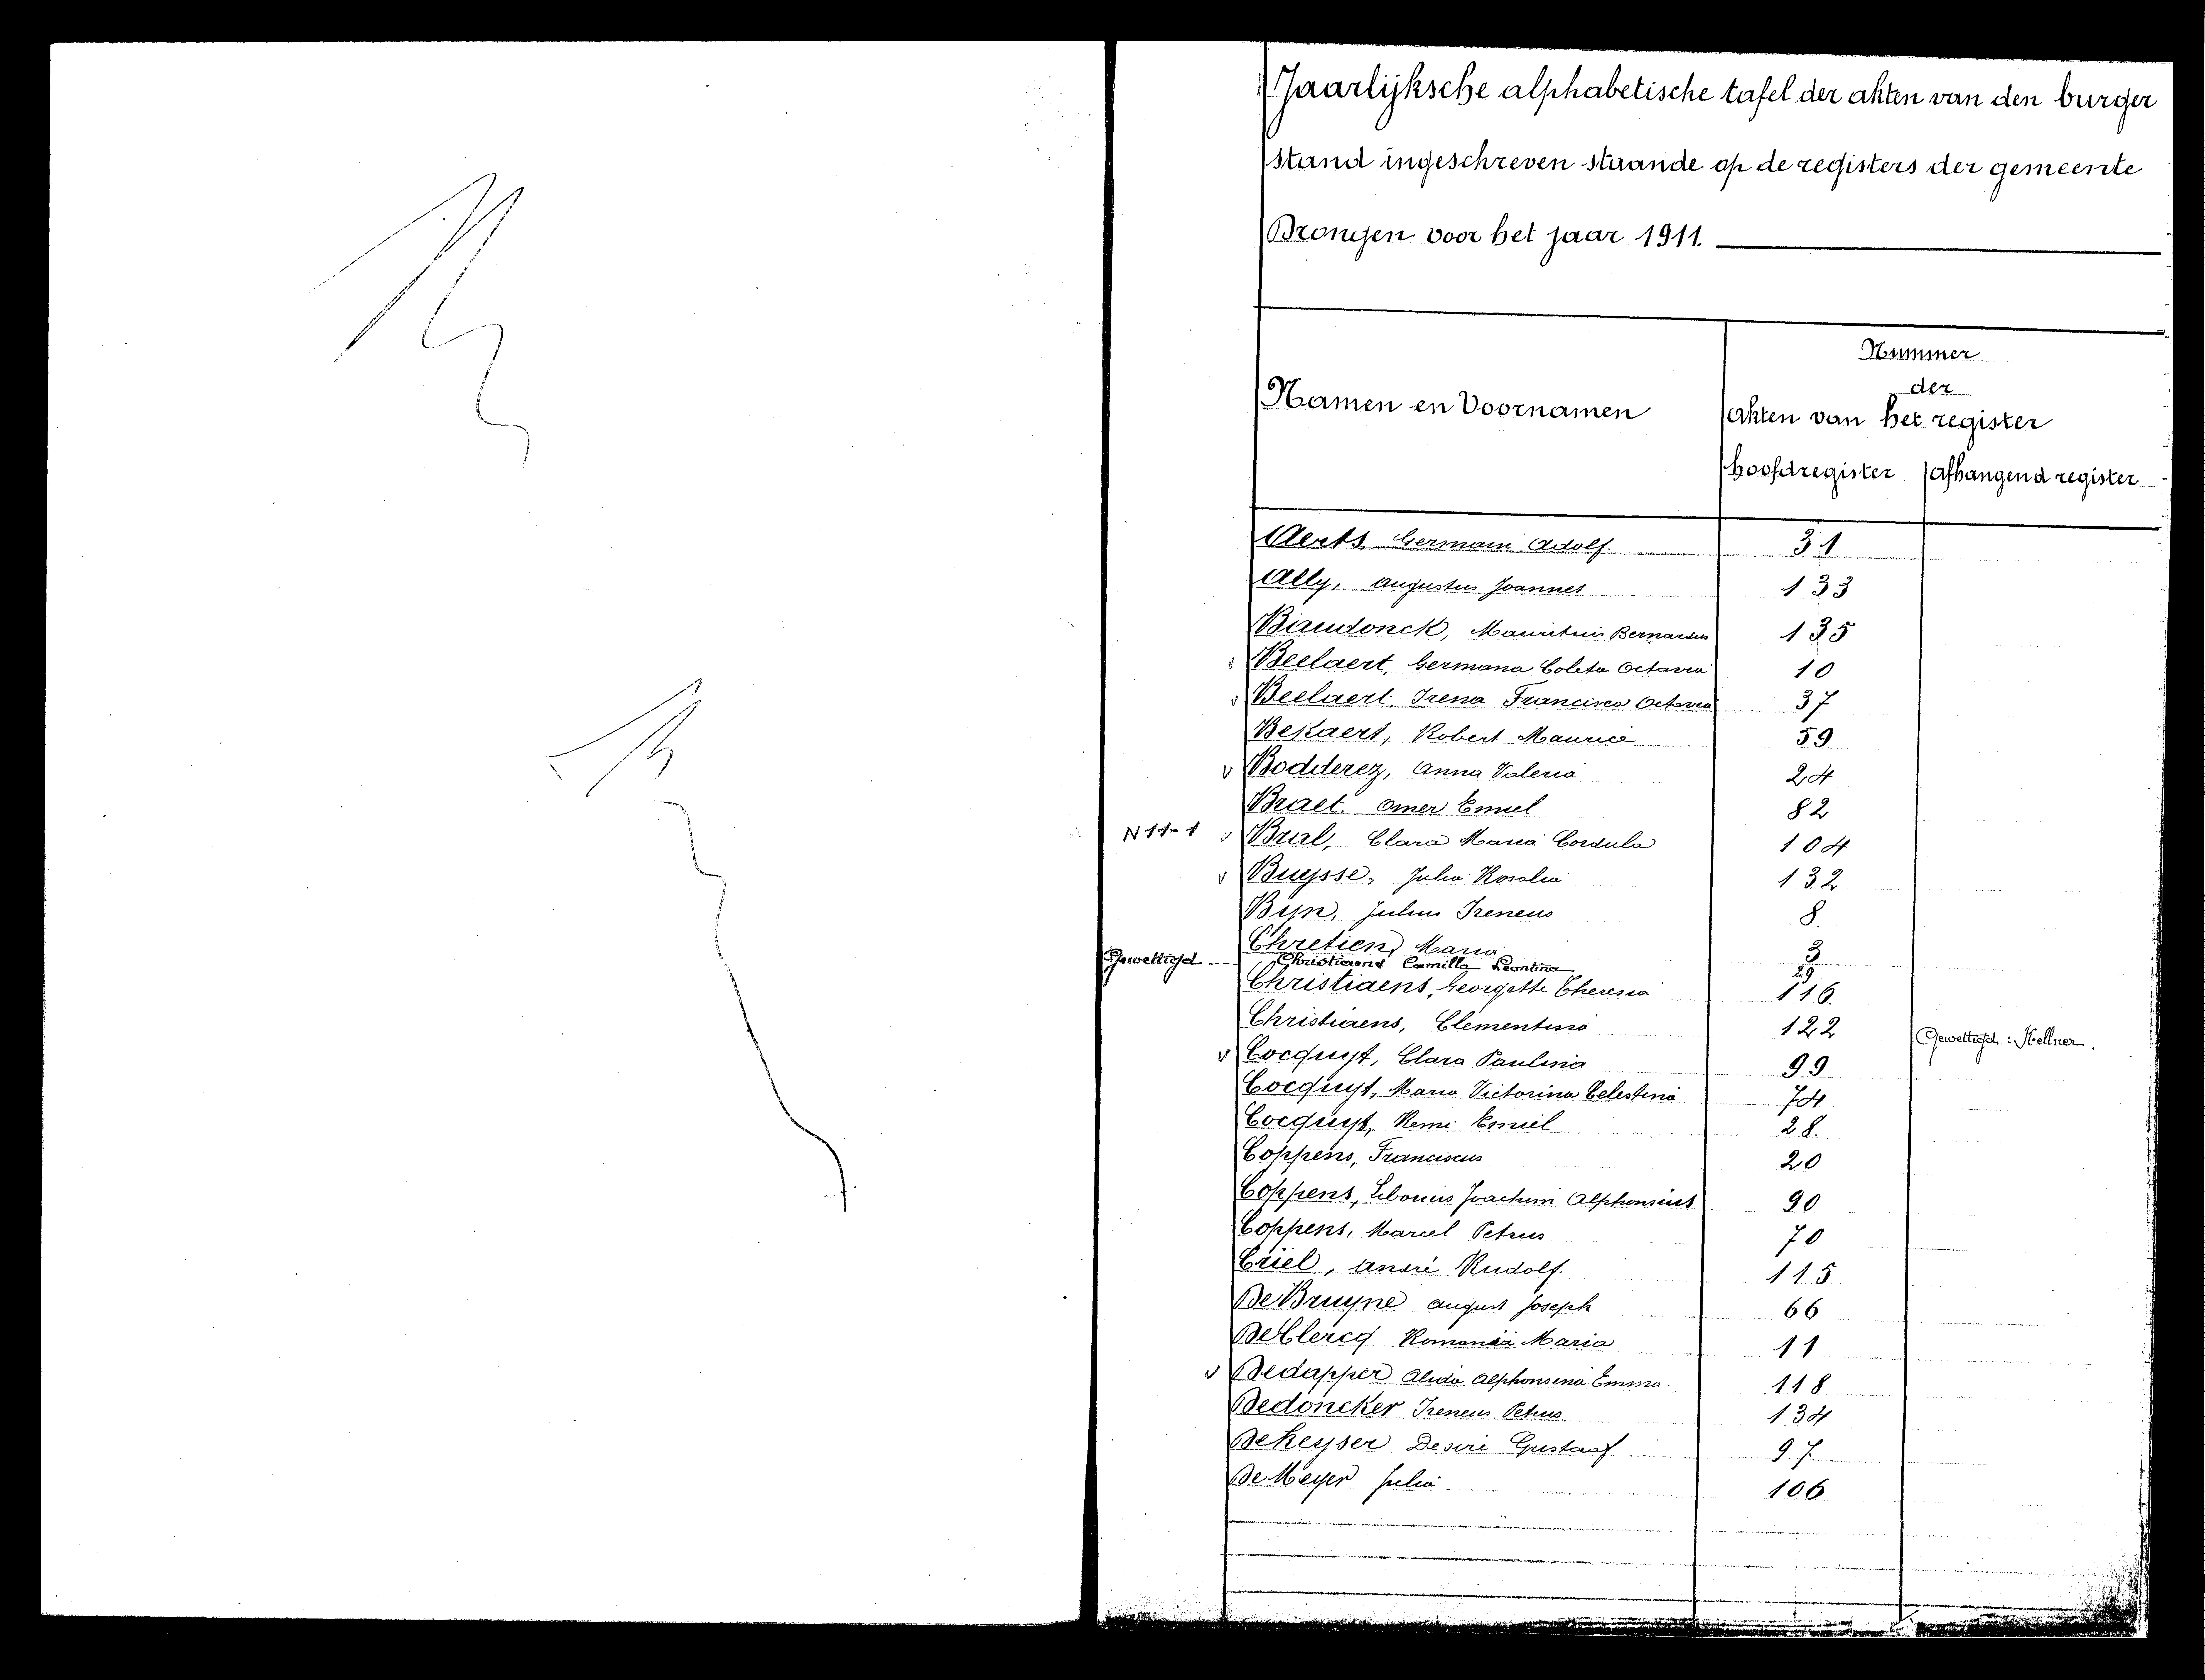 Jaarlijksche alphabetische tafel der akten van den burger
stand ingeschreven staande op de registers der gemeente
Drongen voor het jaar 1911.
Nummer
der
Namen en Voornamen akten van het register
hoofdregister afhangend register
Aerts, Germain Adolf. 31
Ally, Augustus Joannes 133
Baudonck, Mauritius Bernardus 135
v Beelaert, Germana Coleta Octavia 10
v Beelaert, Irena Francisca Octavia 37
Bekaert, Robert Maurice 59
v Bodderez, Anna Valeria 24
Braet, Omer Emiel 82
N 11-1 v Bral, Clara Maria Cordula 104
v Buysse, Julia Rosalia 132
Byn, Julius Ireneus 8.
Chretien, Maria 3
Gewettigd Christiaens Camilla Leontina 29
Christiaens, Georgette Theresia 116.
Christiaens, Clementina 122 Gewettigd: Kellner.
v Cocquyt, Clara Paulina 99
Cocquyt, Maria Victorina Celestina 74
Cocquyt, Remi Emiel 28.
Coppens, Franciscus 20
Coppens, Joachim Alphonsius 90
Coppens, Marcel Petrus 70
Criel, André Rudolf. 115
De Bruyne August Joseph 66
De Clercq Romania Maria 11
v Dedapper Alida Alphonsena Emma. 118
Dedoncker Ireneus Petrus 134
De Keyser Desiré Gustaaf 97
De Meyer Julia 106